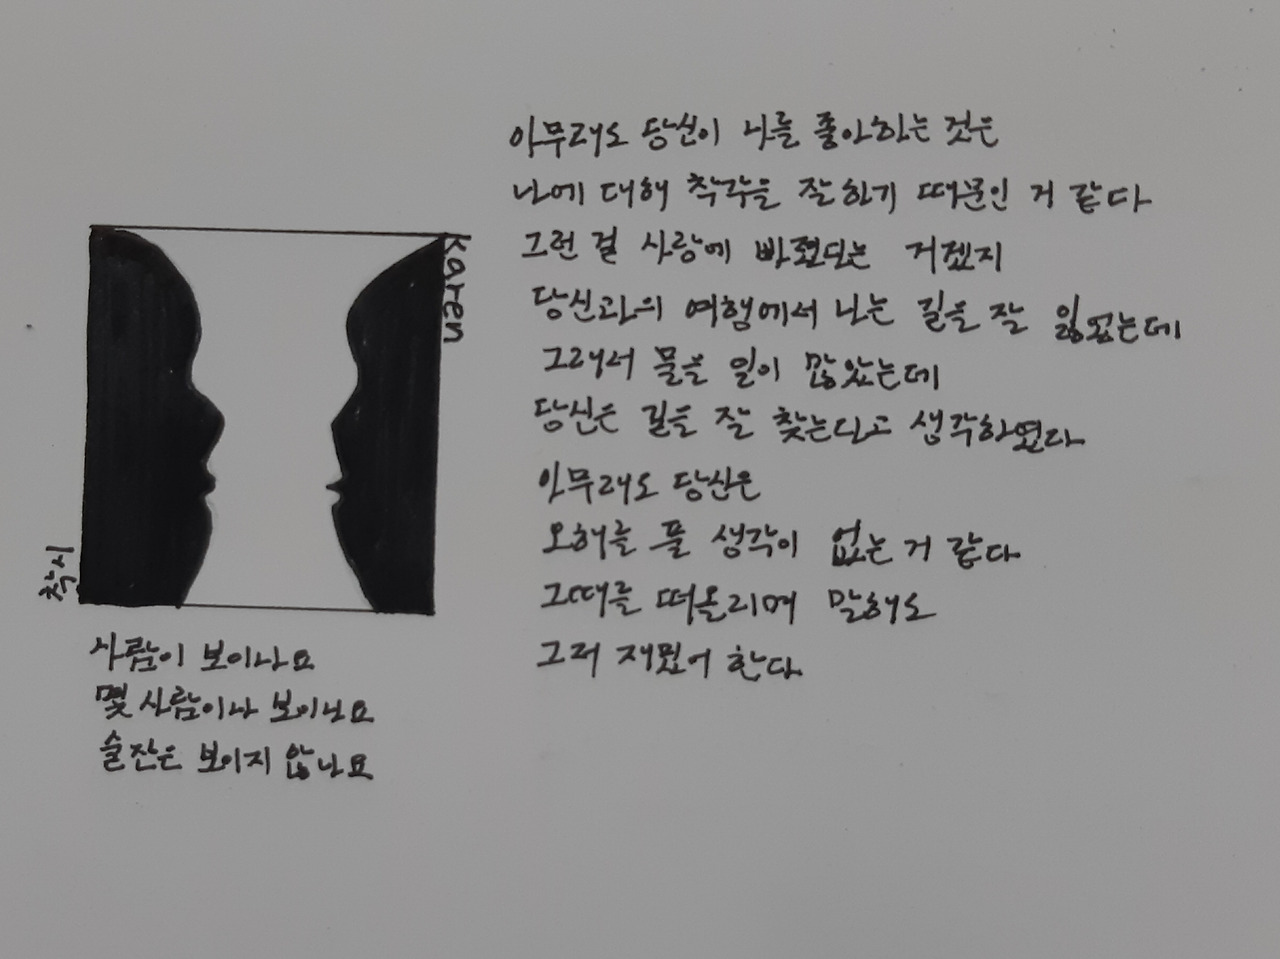 Karen
착시
사람이 보이나요
몇 사람이나 보이나요
술잔은 보이지 않나요
아무래도 당신이 나를 좋아하는 것은
나에 대해 착각을 잘하기 때문인 거 같다
그런 걸 사랑에 빠졌다는 거겠지
당신과의 여행에서 나는 길을 잘 잃었는데
그래서 물을 일이 많았는데
당신은 길을 잘 찾는다고 생각하였다
아무래도 당신은
오해를 풀 생각이 없는 거 같다
그때를 떠올리며 말해도
그저 재밌어 한다